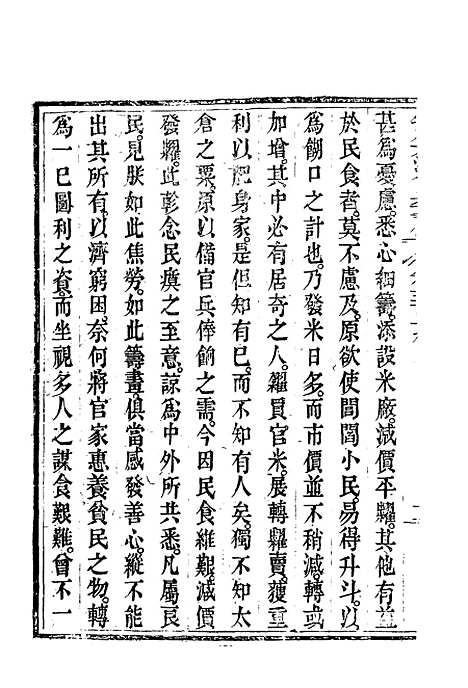 甚爲憂慮。悉心細籌。添設米廠。減價平糶。其他有益
於民食者。莫不慮及。原欲使閭閻小民。易得升斗。以
爲餬口之計也。乃發米日多。而市價並不稍減。轉或
加增。其中必有居奇之人。糴買官米。展轉糶賣。獲重
利以肥身家。是但知有已。而不知有人矣。獨不知太
倉之粟。原以備官兵俸餉之需。今因民食維艱。減價
發糶。此軫念民瘼之至意。諒爲中外所共悉。凡屬良
民。見朕如此焦勞。如此籌畫。俱當感發善心。縱不能
出其所有。以濟窮困。奈何將官家惠養貧民之物。轉
爲一已圖利之資。而坐視多人之謀食艱難。曾不一